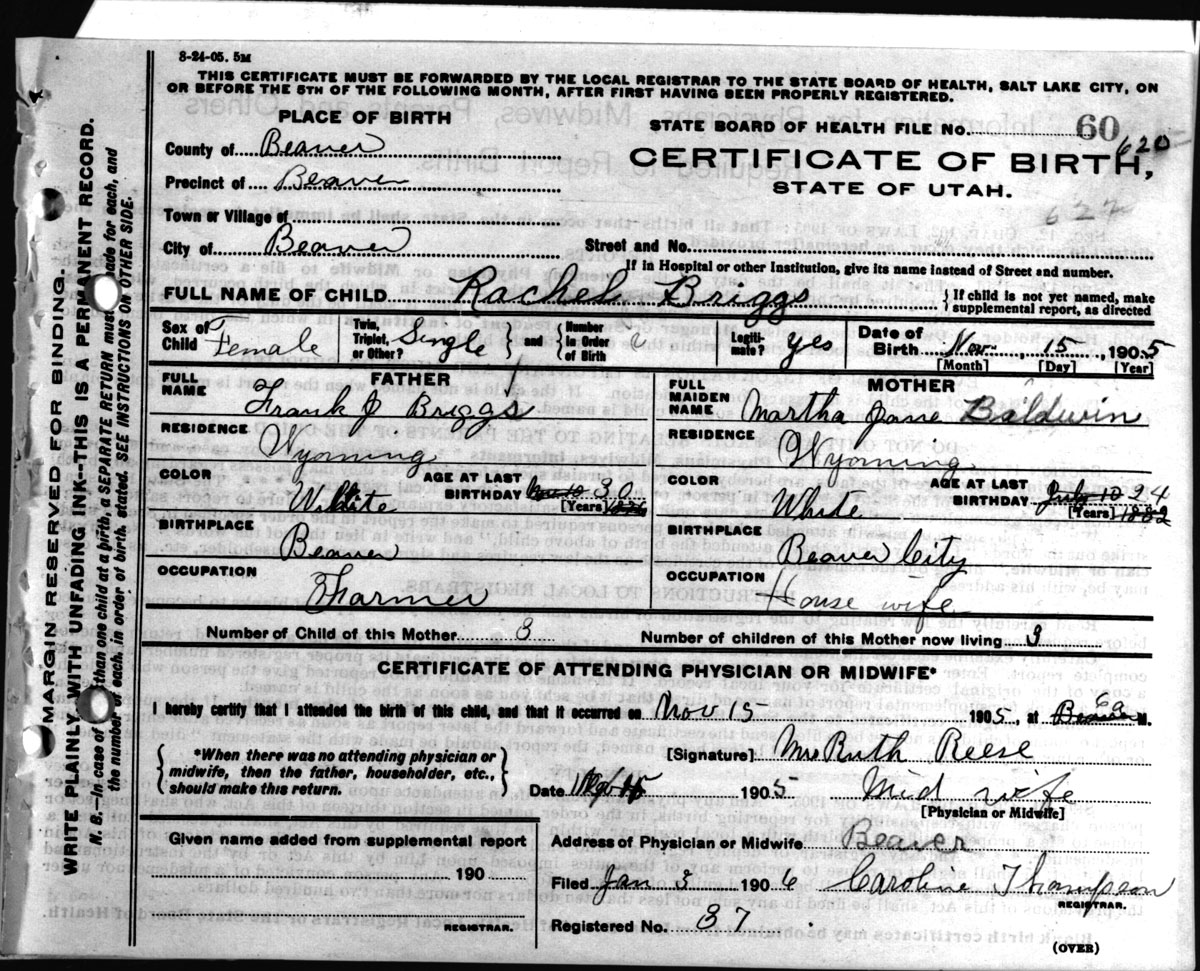 8-24-05. 5M
THIS CERTIFICATE MUST BE FORWARDED BY THE LOCAL REGISTRAR TO THE STATE BOARD OF HEALTH, SALT LAKE CITY, ON
OR BEFORE THE 5TH OF THE FOLLOWING MONTH, AFTER FIRST HAVING BEEN PROPERLY REGISTERED.
PLACE OF BIRTH
STATE BOARD OF HEALTH FILE No. 60 620
County of Beaver
CERTIFICATE OF BIRTH,
Precinct of Beaver
STATE OF UTAH.
Town or Village of
627
City of Beaver
Street and No.
If in Hospital or other Institution, give its name instead of Street and number.
FULL NAME OF CHILD Rachel Briggs { If child is not yet named, make supplemental report, as directed
Sex of Child Female Twin, Triplet, or Other? Single } and { Number in Order of Birth Legiti-mate? yes Date of Birth Nov 15, 1905
[Month] [Day] [Year]
FATHER
FULL NAME Frank J Briggs
RESIDENCE
Wyoming
COLOR White AGE AT LAST BIRTHDAY 30
[Years]
BIRTHPLACE
Beaver
OCCUPATION
Farmer
MOTHER
FULL MAIDEN NAME Martha Jane Baldwin
RESIDENCE
Wyoming
COLOR White AGE AT LAST BIRTHDAY July 10 24
[Years] 1882
BIRTHPLACE
Beaver City
OCCUPATION
House wife
Number of Child of this Mother 3 Number of children of this Mother now living 3
CERTIFICATE OF ATTENDING PHYSICIAN OR MIDWIFE*
I hereby certify that I attended the birth of this child, and that it occurred on Nov 15 1905, at 6 a M.
{ *When there was no attending physician or
midwife, then the father, householder, etc.,
should make this return. }
[Signature] Mrs Ruth Reese
Date 1905 Mid wife
[Physician or Midwife]
Given name added from supplemental report
190
REGISTRAR.
Address of Physician or Midwife Beaver
Filed Jan 3 1906 Caroline Thompson
REGISTRAR.
Registered No. 37
(OVER)
MARGIN RESERVED FOR BINDING.
WRITE PLAINLY WITH UNFADING INK--THIS IS A PERMANENT RECORD.
N. B. In case of more than one child at a birth, a SEPARATE RETURN must be made for each, and
the number of each, in order of birth, stated. SEE INSTRUCTIONS ON OTHER SIDE.